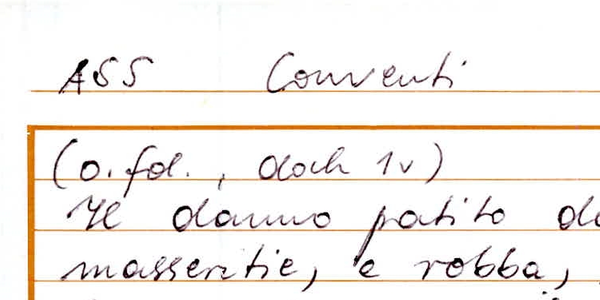 ASS Conventi
(o. fol., doch 1v)
Il danno patito
masseritie, e robba,